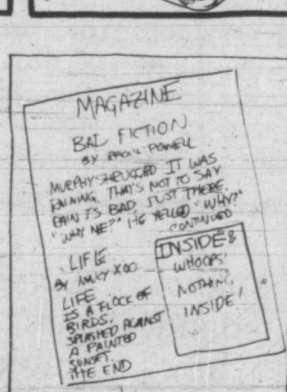 MAGAZINE
BAD FICTION
BY POWELL
MURPHY SHRUGGED IT WAS
RAINING. THAT'S NOT TO SAY
RAIN IS BAD JUST THERE.
"WHY ME?" HE YELLED "WHY?"
CONTINUED
LIFE
BY XOO
LIFE
IS A FLOCK OF
BIRDS.
SPLASHED AGAINST
A PAINTED
SUNSET.
THE END
INSIDE:
WHOOPS!
NOTHING
INSIDE!